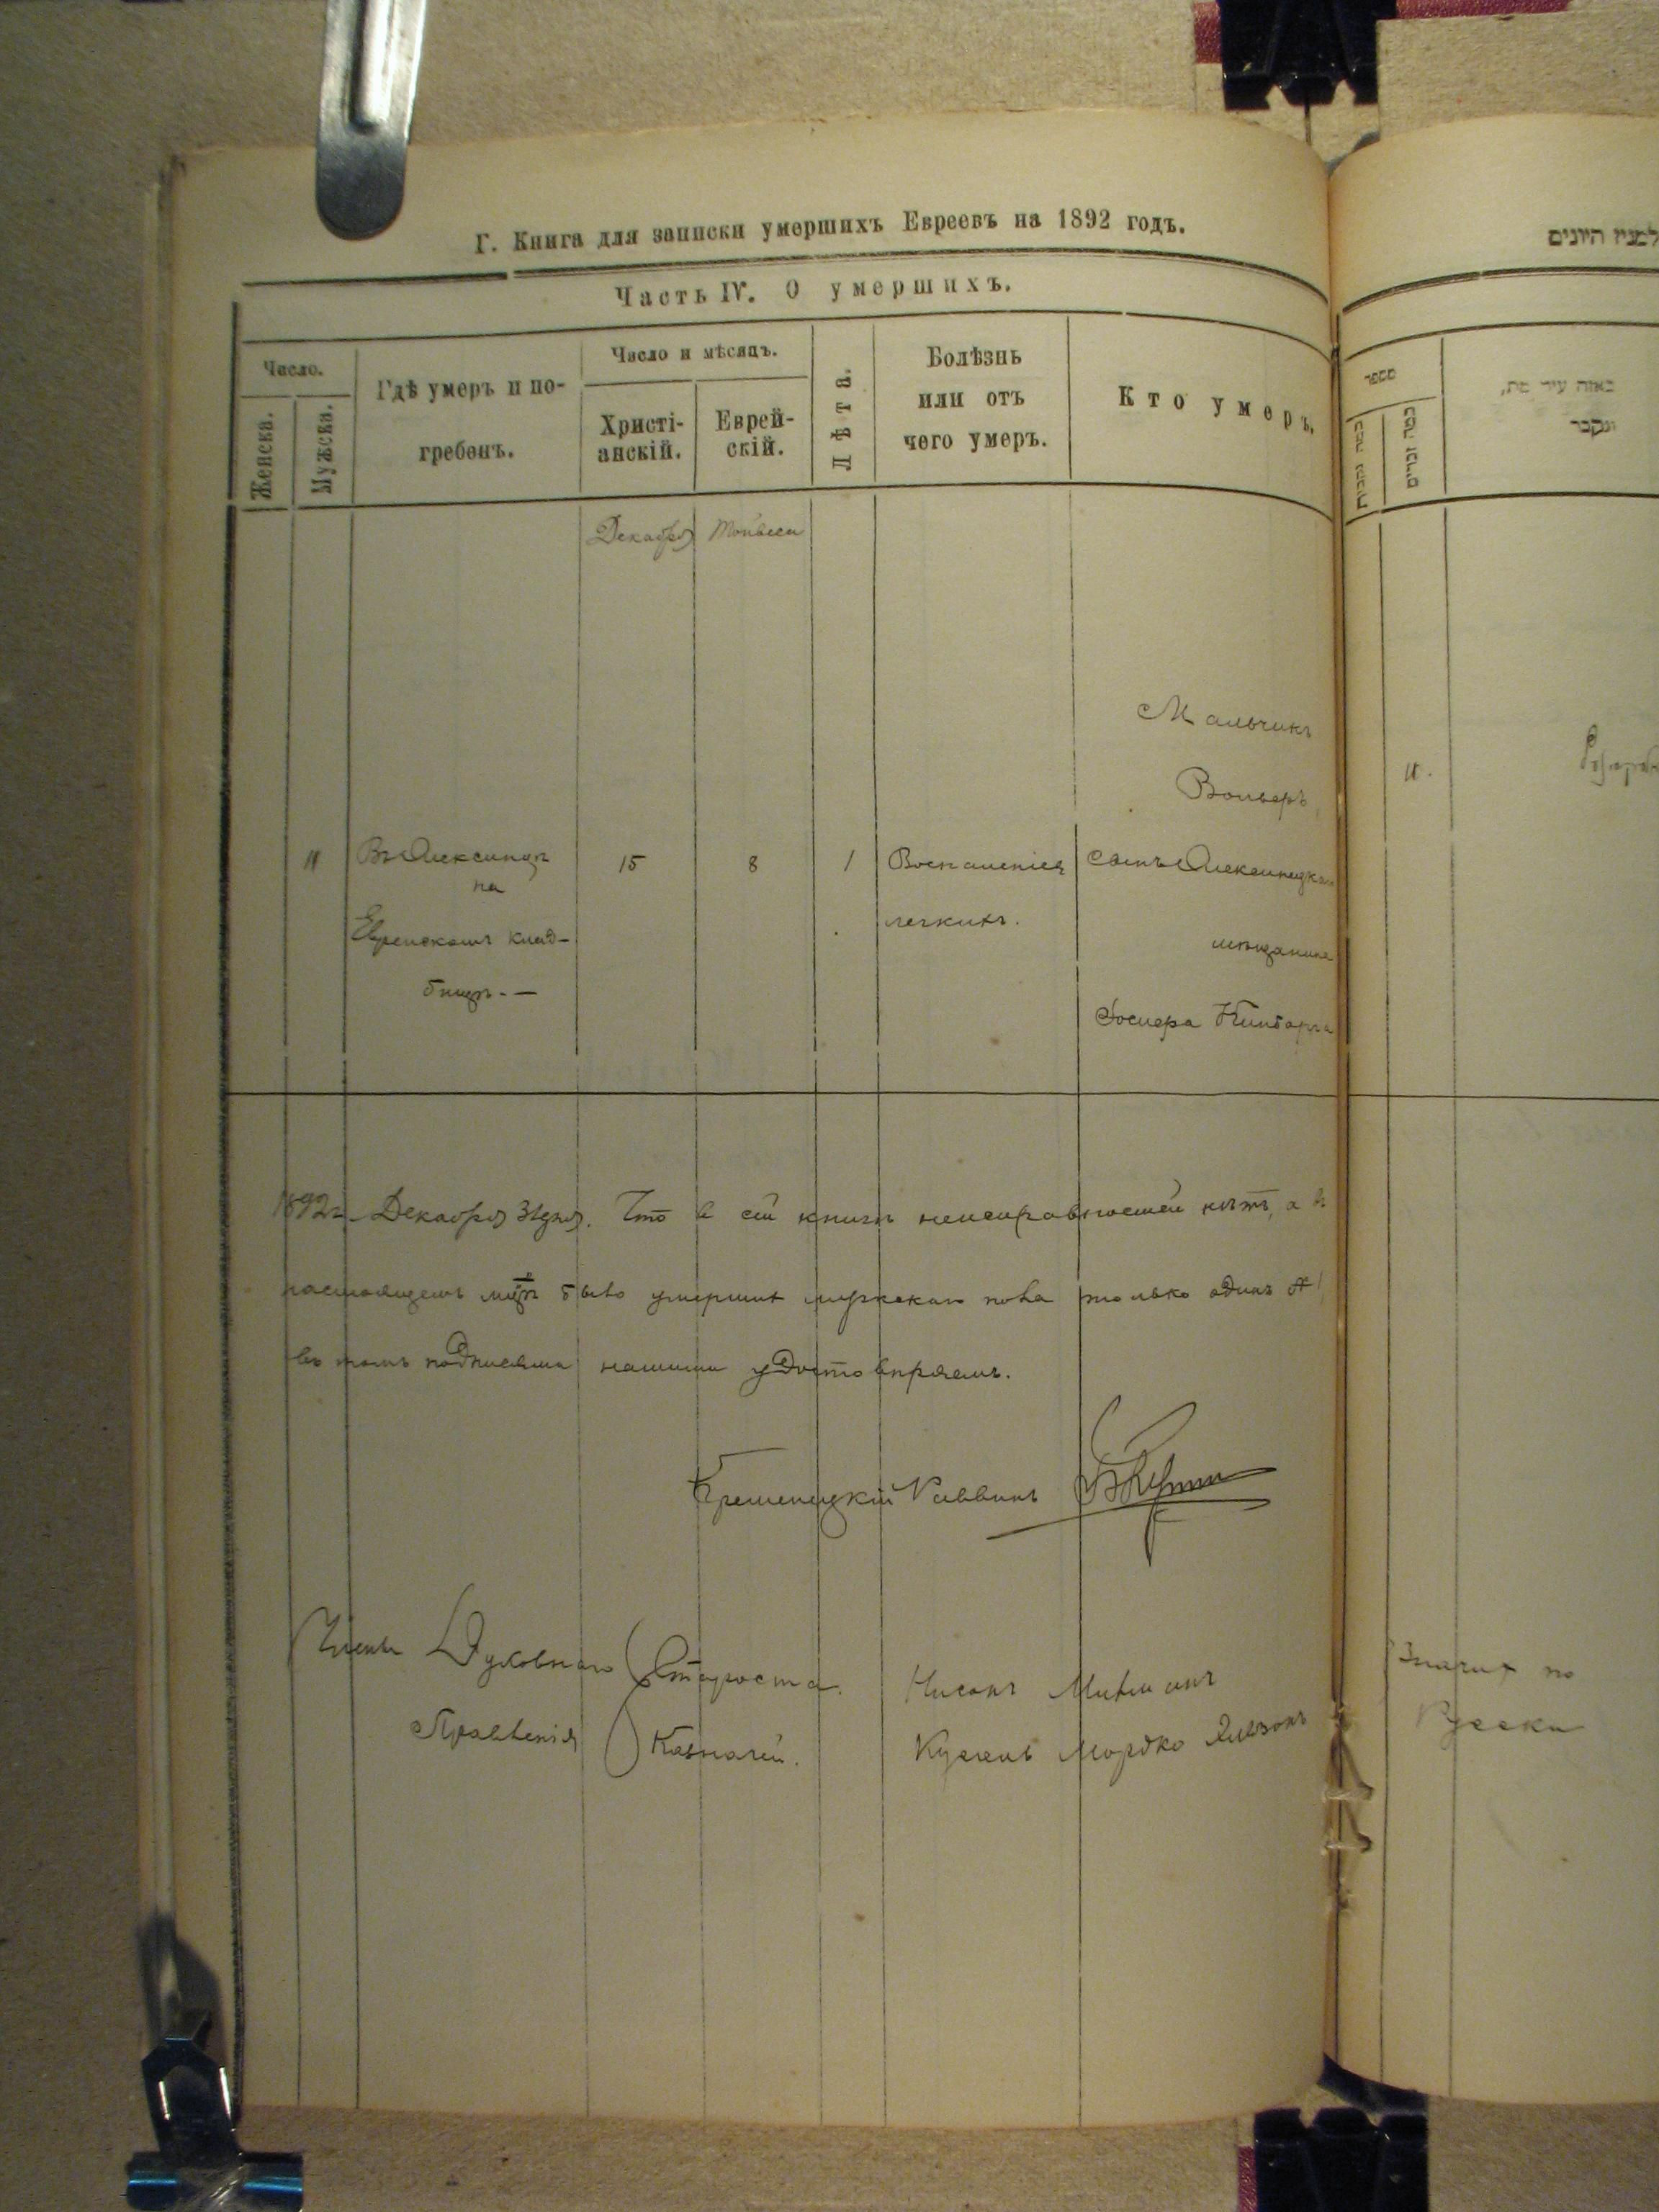 Г. Книга для записки умершихъ Евреевъ на 1892 годъ.
Часть IV. О умершихъ.
Число.
Женска.
Мужска.
Гдѣ умеръ и по-
гребенъ.
Число и мѣсяцъ.
Христі-
анскій.
Еврей-
скій.
Лѣта.
Болѣзнь
или отъ
чего умеръ.
Кто умеръ.
Декабрь
11
Въ Алексинцѣ
на
Еврейскомъ клад-
бищѣ. —
15
8
1
Воспаленіе
легкихъ.
Мальчикъ
Вольфъ
сынъ Алексинецкаго
мѣщанина
1892 г. Декабря 31 дня. Что в сей книгѣ неисправностей нѣтъ, а в
настоящемъ мцѣ было умершихъ мужскаго пола только одинъ
въ томъ подписями нашими удостовѣряемъ.
Кременецкій Раввинъ
Члены Духовнаго
Правленія
Староста.
Казначей.
Нисонъ
Мордко
Значит по
Русски
מספר
באיזה עיר מת,
ונקבר
11.